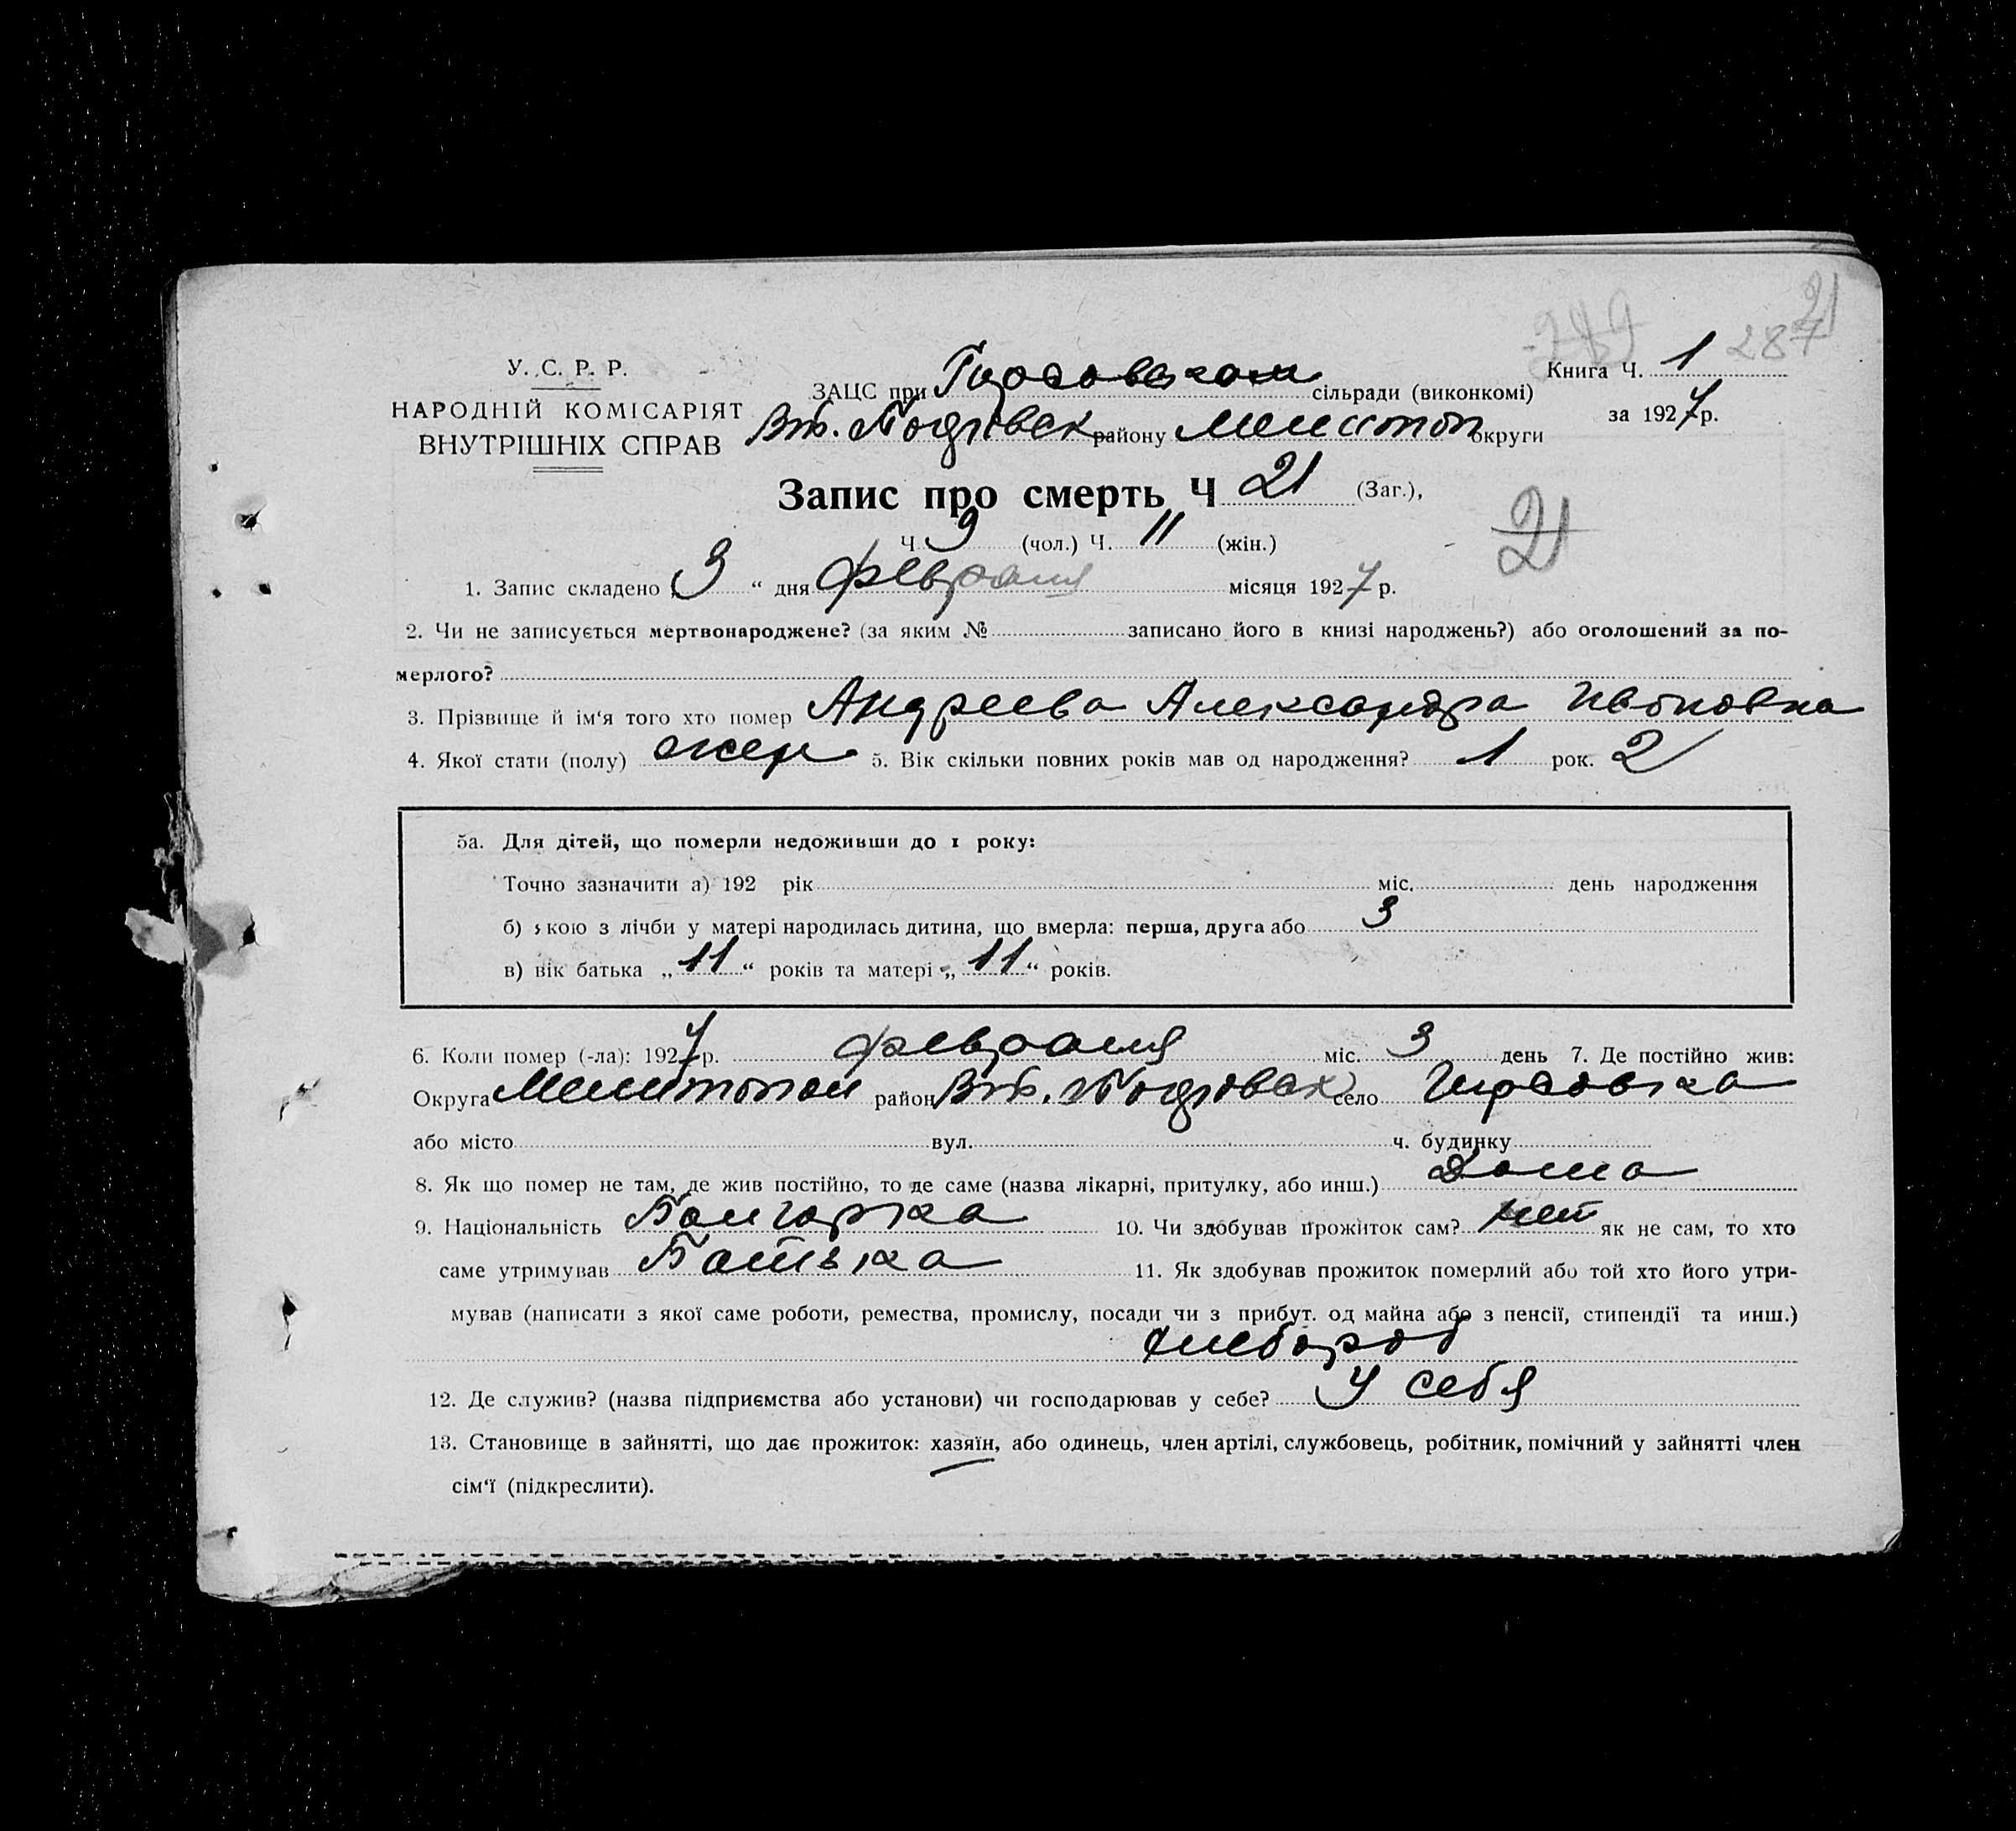 287
21
У. С. Р. Р.
НАРОДНІЙ КОМІСАРІЯТ
ВНУТРІШНІХ СПРАВ
ЗАЦС при сільради (виконкомі)
району округи
Книга Ч. 1
за 1927 р.
Запис про смерть Ч 21 (Заг.),
Ч 9 (чол.) Ч. 11 (жін.)
21
1. Запис складено „3“ дня февраля місяця 1927 р.
2. Чи не записується мертвонароджене? (за яким № записано його в книзі народжень?) або оголошений за по-
мерлого?
3. Прізвище й ім‘я того хто помер Андреева Александра Ивановна
4. Якої стати (полу) жен 5. Вік скільки повних років мав од народження? 1 рок. 2
5а. Для дітей, що померли недоживши до 1 року:
Точно зазначити а) 192 рік міс. день народження
б) кою з лічби у матері народилась дитина, що вмерла: перша, друга або 3
в) вік батька „11“ років та матері „11“ років.
6. Коли помер (-ла): 1927 р. февраля міс. 3 день 7. Де постійно жив:
Округа Мелитополь район село Гирсовка
або місто вул. ч. будинку
8. Як що помер не там, де жив постійно, то де саме (назва лікарні, притулку, або инш.) Дома
9. Національність Болгарка 10. Чи здобував прожиток сам? нет як не сам, то хто
саме утримував Батька 11. Як здобував прожиток померлий або той хто його утри-
мував (написати з якої саме роботи, ремества, промислу, посади чи з прибут. од майна або з пенсії, стипендії та инш.)
хлебороб
12. Де служив? (назва підприємства або установи) чи господарював у себе? У себя
13. Становище в зайнятті, що дає прожиток: хазяїн, або одинець, член артілі, службовець, робітник, помічний у зайнятті член
сім‘ї (підкреслити).